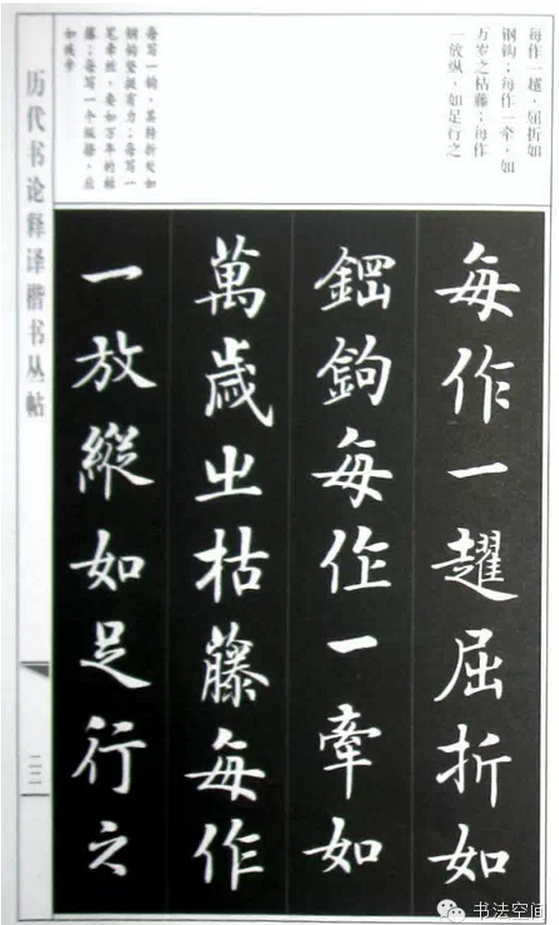 每作一趯，屈折如
钢钩；每作一牵，如
万岁之枯藤；每作
一放纵，如足行之
每写一钩，其转折处如
钢钩坚挺有力；每写一
笔牵丝，要如万年的枯
藤；每写一个
每作一趯屈折如
鋼鉤每作一牽如
萬歲之枯藤每作
一放縱如足行之
历代书论释译楷书丛帖
二二
书法空间